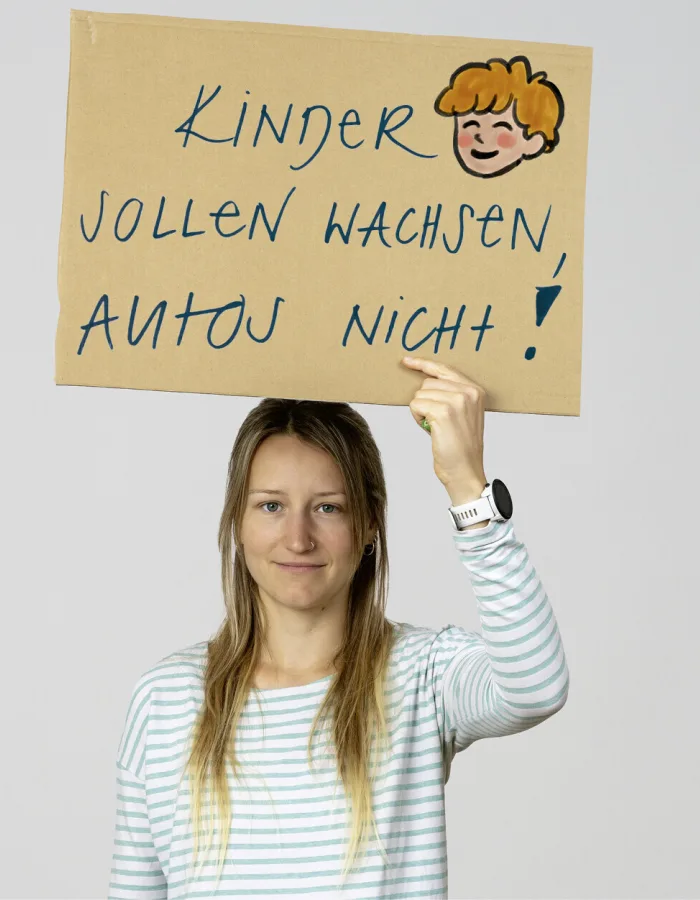 KINDER
SOLLEN WACHSEN,
AUTOS NICHT!